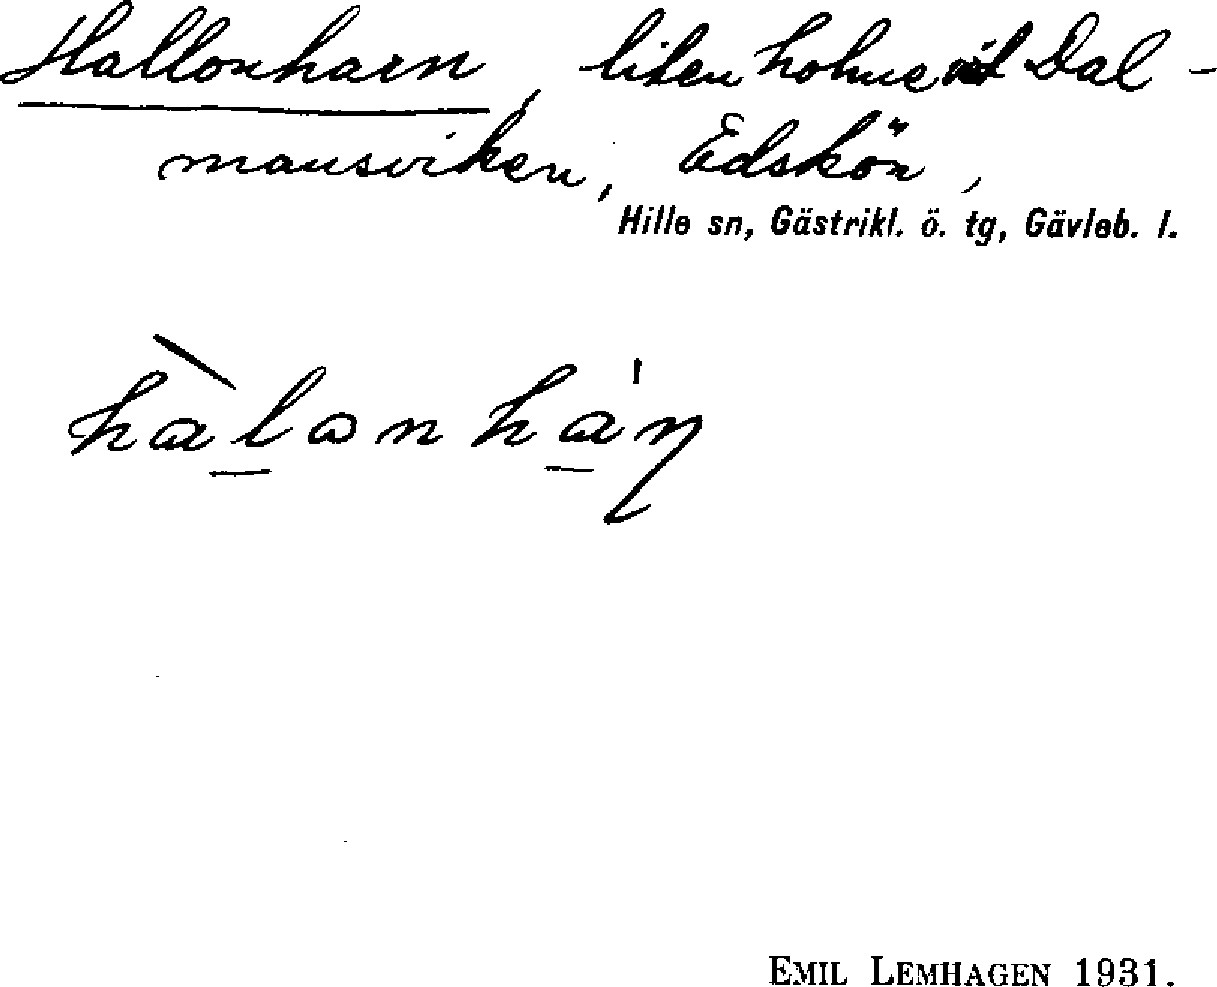 Hallonharn, liten holme vid Dal-
mansviken, Edskön,
Hille sn, Gästrikl. ö. tg, Gävleb. l.
EMIL LEMHAGEN 1931.